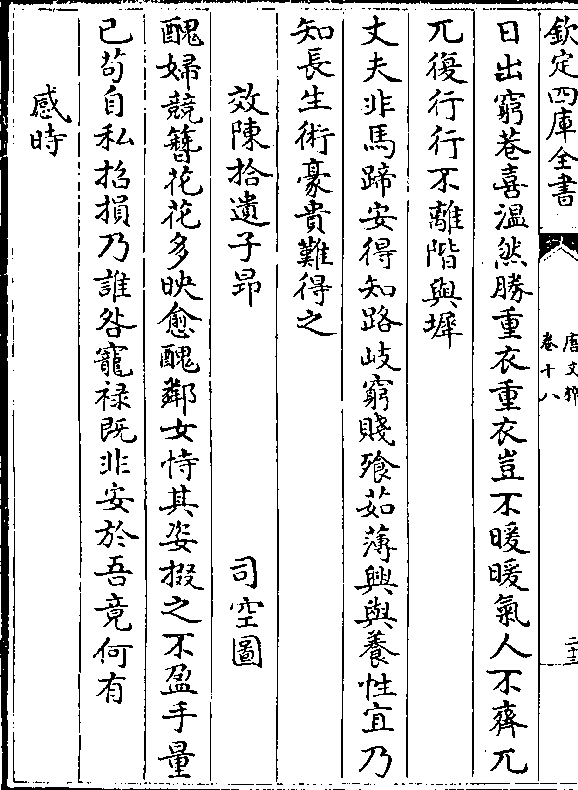 欽定四庫全書
唐文粹
卷十八
二十三
日出窮巷喜溫然勝重衣重衣豈不暖暖氣人不齊兀
兀復行行不離階與墀
丈夫非馬蹄安得知路岐窮賤飱茹薄興與養性宜乃
知長生術豪貴難得之
效陳拾遺子昂 司空圖
醜婦競簪花花多映愈醜鄰女恃其姿掇之不盈手量
已苟自私招損乃誰咎寵禄既非安於吾竟何有
感時